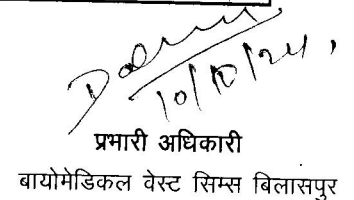 10/10/24,
प्रभारी अधिकारी
बायोमेडिकल वेस्ट सिम्स बिलासपुर